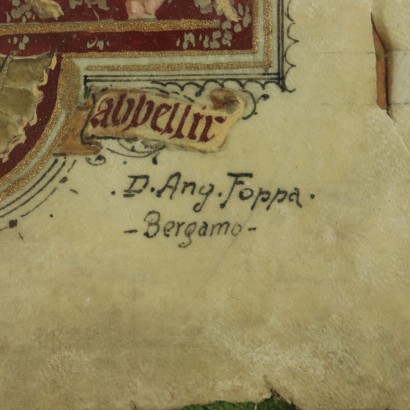 abbellir
. D. Ang. Foppa.
- Bergamo -